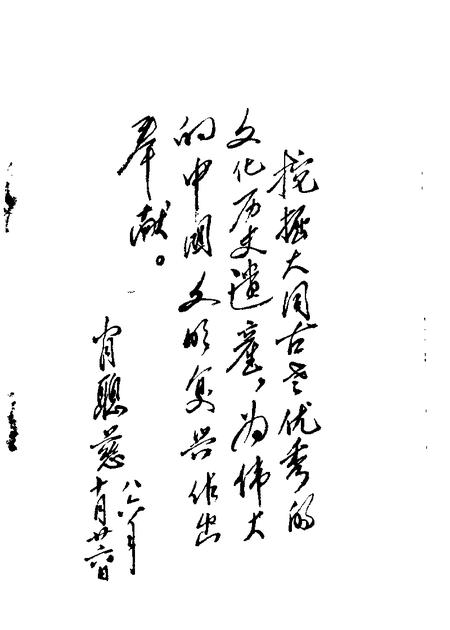 挖掘大同古老优秀的
文化历史遗产，为伟大
的中国文明复兴作出
奉献。
肖聪慈
八六年
十月廿六日